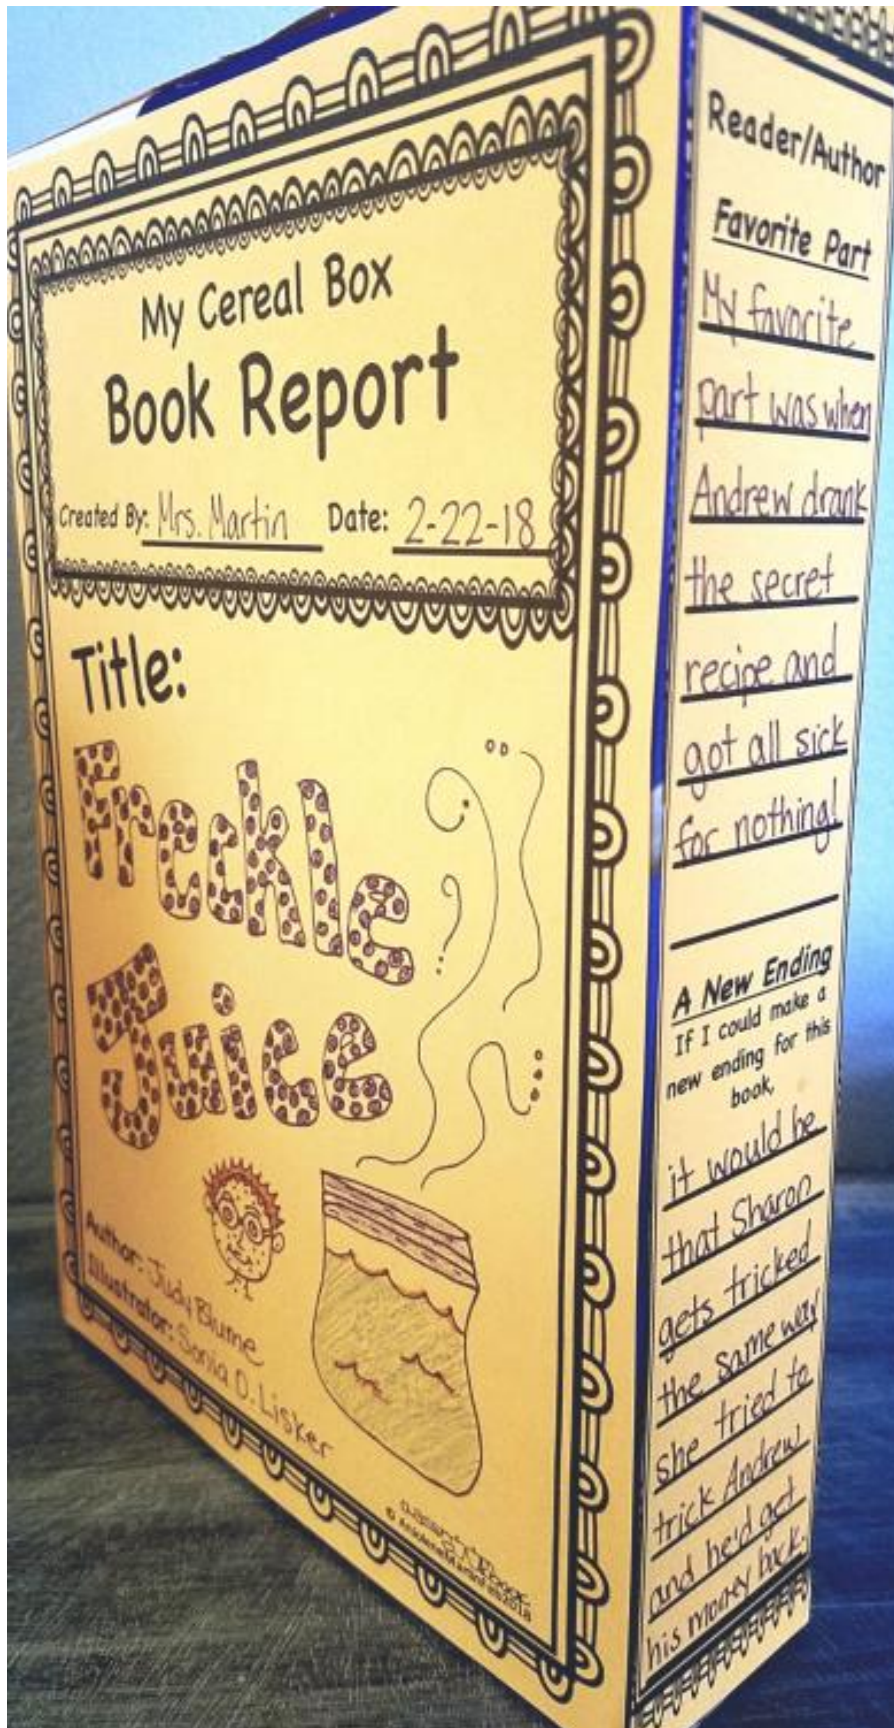 My Cereal Box
Book Report
Created By: Mrs. Martin Date: 2-22-18
Title:
Freckle
Juice
Author: Judy Blume
Illustrator: Sonia D. Lisker
Reader/Author
Favorite Part
My favorite
part was when
Andrew drank
the secret
recipe and
got all sick
for nothing!
A New Ending
If I could make a
new ending for this
book,
it would be
that Sharon
gets tricked
the same way
she tried to
trick Andrew
and he'd get
his money back.